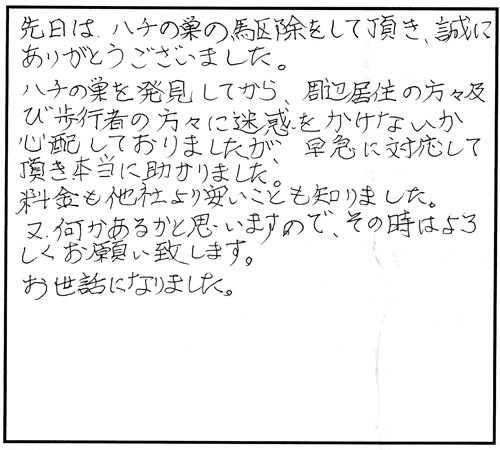 先日は、ハチの巣の駆除をして頂き、誠に
ありがとうございました。
ハチの巣を発見してから、周辺居住の方々及
び歩行者の方々に迷惑をかけないか
心配しておりましたが、早急に対応して
頂き本当に助かりました。
料金も他社より安いことも知りました。
又、何かあるかと思いますので、その時はよろ
しくお願い致します。
お世話になりました。